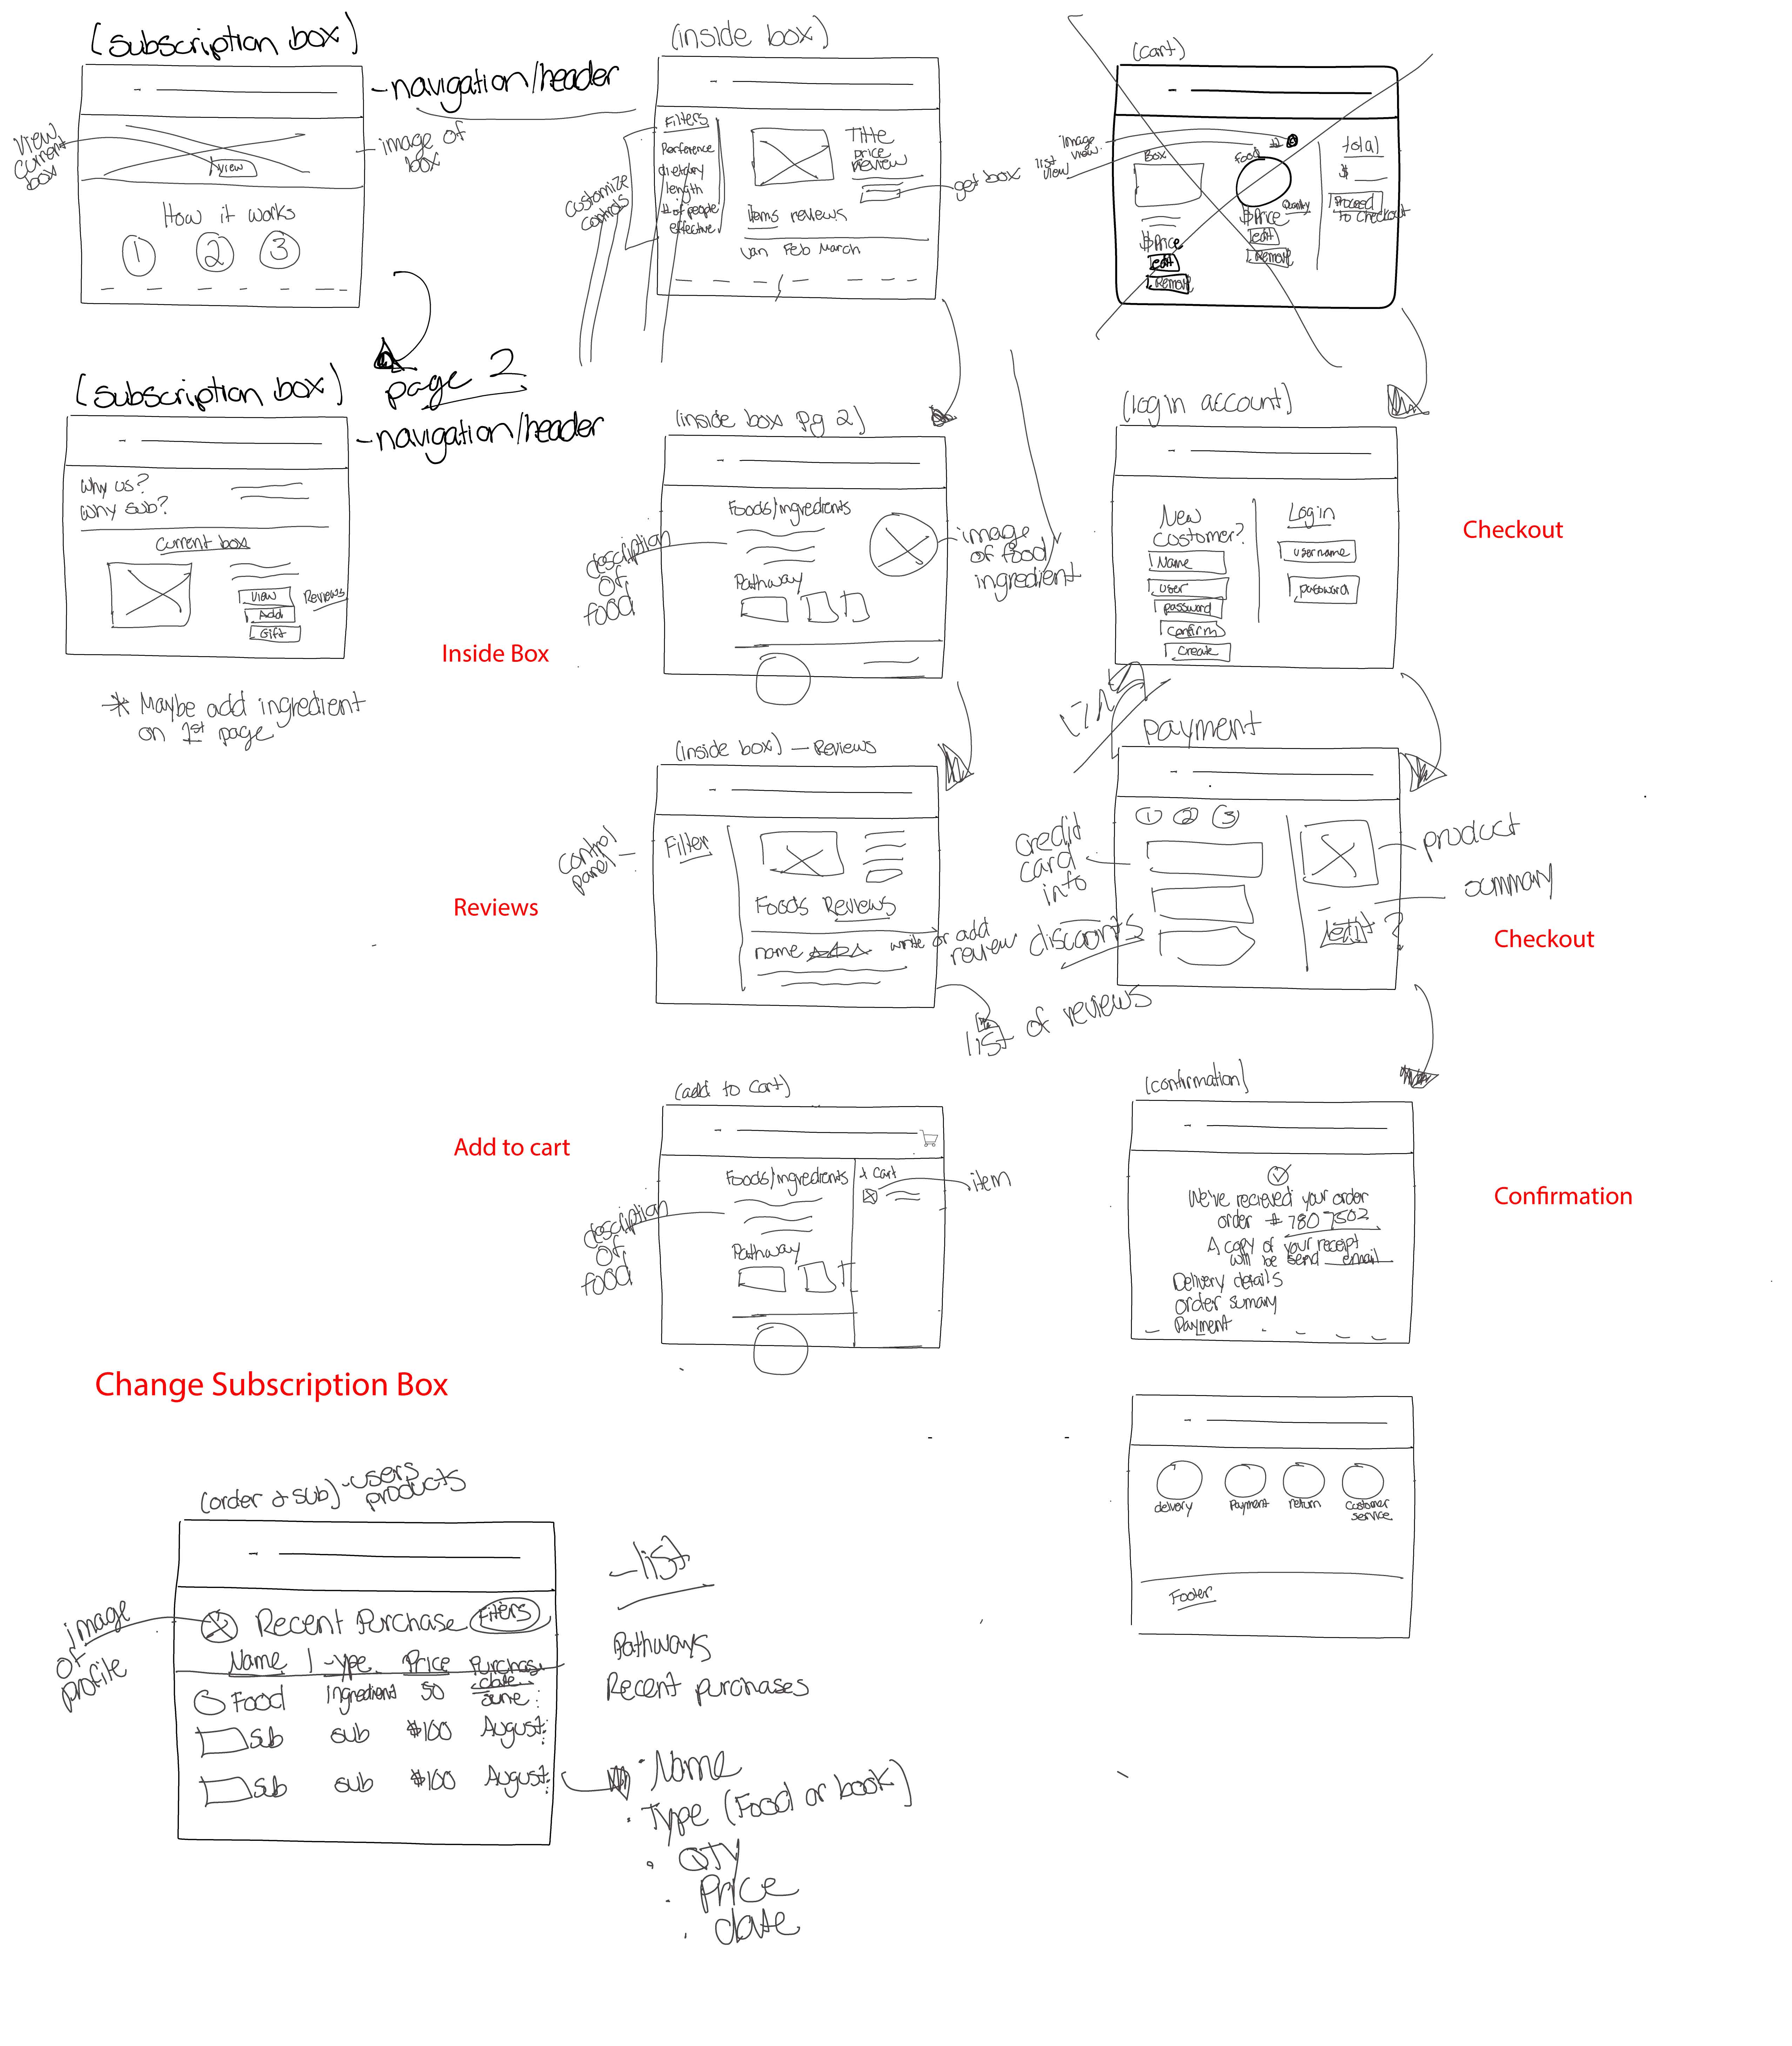 (subscription box)
-navigation/header
view
current
box
image of
box
view
How it works
1 2 3
(subscription box)
page 2
-navigation/header
Why us?
Why sub?
Current box
view
Add
Gift
Reviews
* Maybe add ingredient
on 1st page
(inside box)
Filters
Perference
dietary
length
# of people
effective
customize
controls
Title
price
review
get box
items reviews
Jan Feb March
(inside box pg 2)
Foods/ingredients
description
of
food
image
of food
ingredient
Pathway
Inside Box
(inside box) - Reviews
control
panel
Filter
Foods Reviews
name write or add
review
list of reviews
Reviews
(add to cart)
Add to cart
Foods/ingredients
+ Cart
item
description
of
food
Pathway
(cart)
image
view
list
view
Box
Food
total
$
Proceed
to checkout
$Price
edit
Remove
Quantity
$Price
edit
Remove
(login account)
New
customer?
Name
user
password
confirm
create
Login
username
password
Checkout
payment
1 2 3
credit
card
info
discounts
product
summary
edit?
Checkout
(confirmation)
We've recieved your order
order # 7807502
A copy of your receipt
will be send email
Delivery details
order sumary
Payment
Confirmation
delivery
Payment
return
Customer
service
Footer
Change Subscription Box
(order & sub) -users
products
image
of
profile
Recent Purchase Filters
Name Type Price Purchase
date
Food ingredient 50 June
Sub sub $100 August
Sub sub $100 August
-list
Pathways
Recent purchases
· Name
· Type (Food or book)
· QTY
· Price
· date